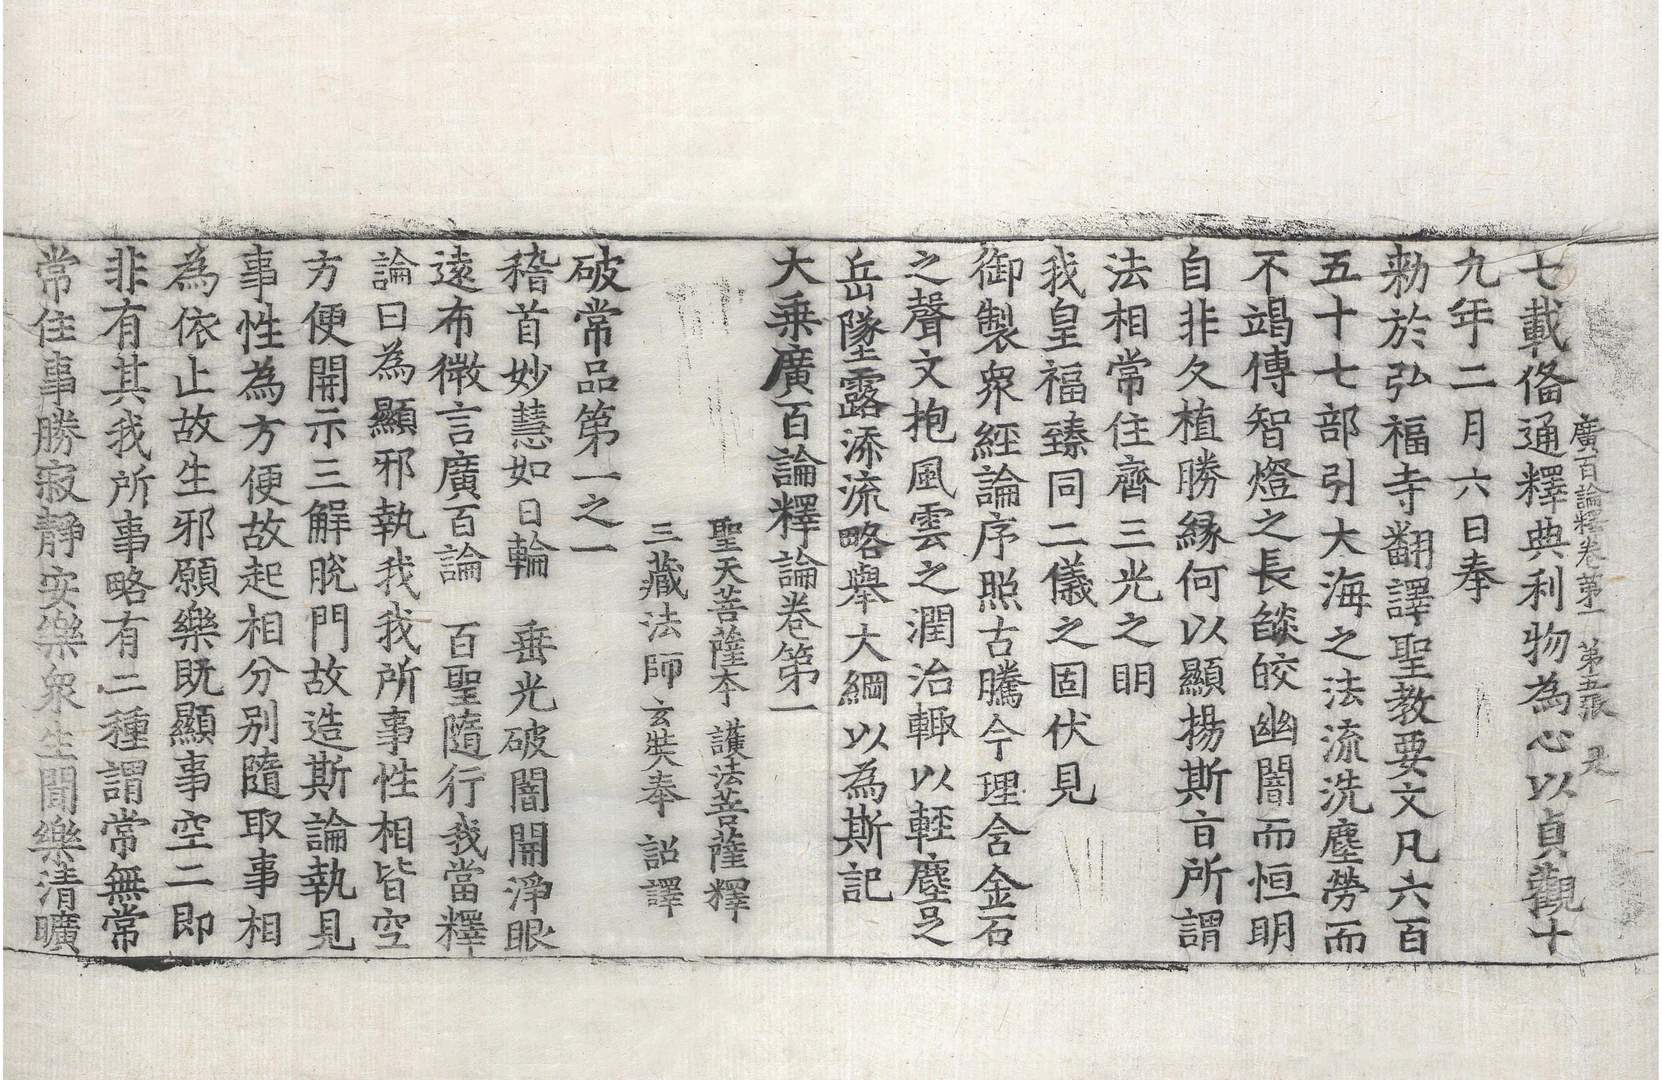 廣百論釋卷第一 第五張 是
七載俻通釋典利物為心以貞觀十
九年二月六日奉
勑於弘福寺翻譯聖教要文凡六百
五十七部引大海之法流洗塵勞而
不竭傳智燈之長燄皎幽闇而恒明
自非久植勝縁何以顯揚斯㫖所謂
法相常住齊三光之明
我皇福臻同二儀之固伏見
御製衆經論序照古騰今理含金石
之聲文抱風雲之潤治輙以輕塵足
岳墜露添流略舉大綱以為斯記
大乗廣百論釋論卷第一
聖天菩薩本 護法菩薩釋
三藏法師玄奘奉 詔譯
破常品第一之一
稽首妙慧如日輪 垂光破闇開淨眼
遠布微言廣百論 百聖隨行我當釋
論曰為顯邪執我我所事性相皆空
方便開示三解脫門故造斯論執見
事性為方便故起相分别隨取事相
為依止故生邪願樂既顯事空二即
非有其我所事略有二種謂常無常
常住事勝寂靜安樂衆生聞樂清曠